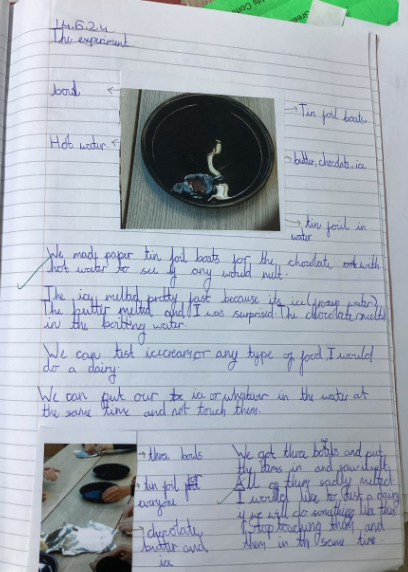 14.6.24
The experiment
bowl
Hot water
Tin foil boats
butter, chocolate, ice
tin foil in
water
We made paper tin foil boats for the chocolate with
hot water to see if any would melt.
The icy melted pretty fast because its ice (frozy water)
The butter melted and I was surprised. The chocolate melted
in the boiting water.
We can test icecream or any type of food. I would
do a dairy.
We can put our ice or whatever in the water at
the same time and not touch them.
three bowls
tin foil for
everyone
chocolate,
butter and
ice
We got three bowls and put
the items in and saw
All of them sadly melted.
I would like to test a dairy
if we will do something like this.
Stop touching them and
them in the same time.